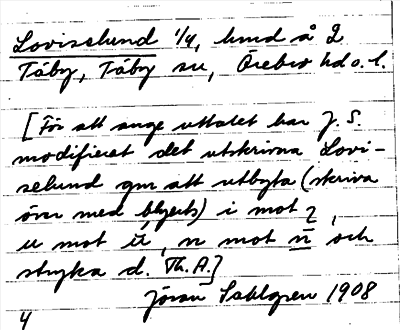 Loviselund 1/4, hmd å 2
Täby, Täby sn, Örebro hd o. l.
[För att ange uttalet har J. S.
modifierat det utskrivna Lovi-
selund gm att utbyta (skriva
över med blyerts) i mot ɿ,
u mot ŭ, n mot n̄ och
stryka d. Th. A.]
Jöran Sahlgren 1908
4